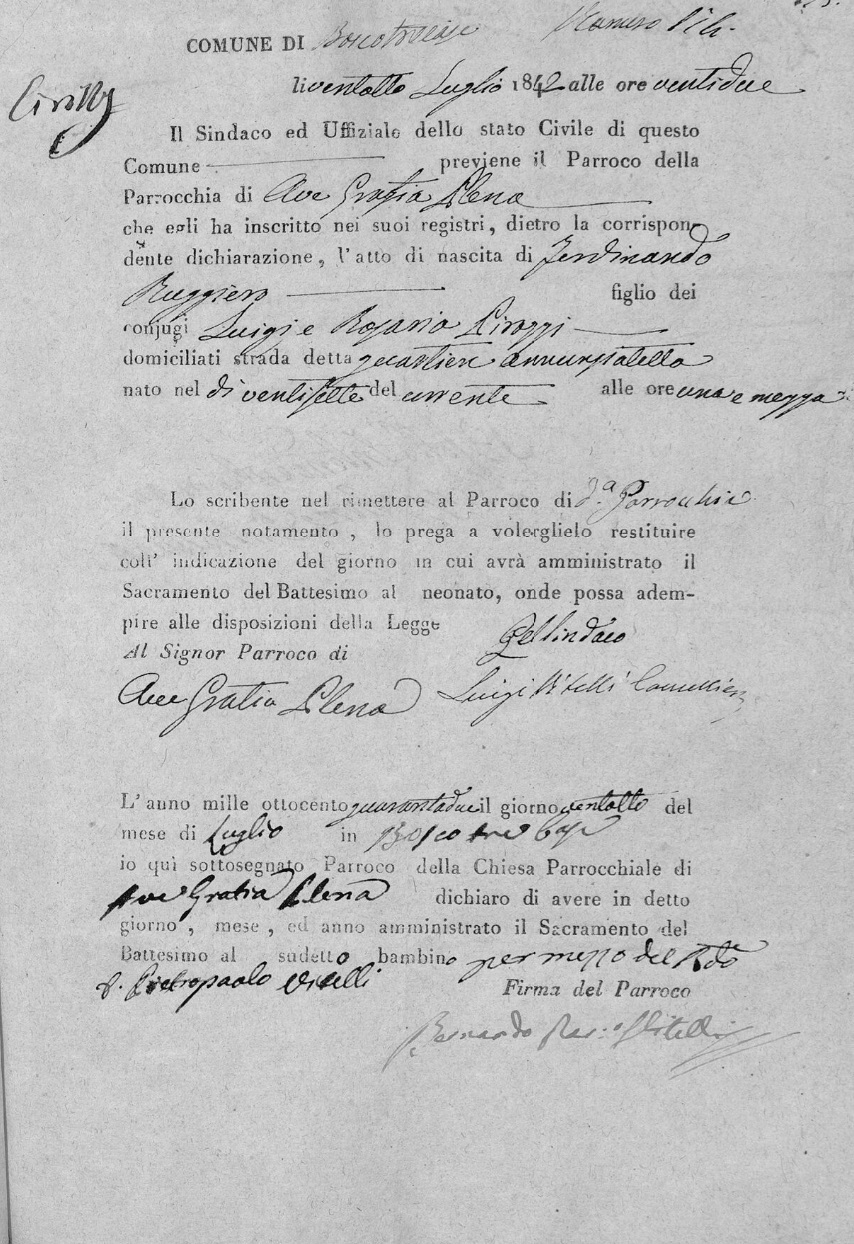 COMUNE DI Boscotrecase Numero
li ventotto Luglio 1842 alle ore ventidue
Il Sindaco ed Uffiziale dello stato Civile di questo
Comune previene il Parroco della
Parrocchia di Ave Gratia Plena
che egli ha inscritto nei suoi registri, dietro la corrispon-
dente dichiarazione, l'atto di nascita di Ferdinando
Ruggiero figlio dei
conjugi Luigi e Rosaria
domiciliati strada detta quartiere Annunziatella
nato nel di ventisette del corrente alle ore una e mezza
Lo scribente nel rimettere al Parroco di d.a Parrocchia
il presente notamento, lo prega a volerglielo restituire
coll' indicazione del giorno in cui avrà amministrato il
Sacramento del Battesimo al neonato, onde possa adem-
pire alle disposizioni della Legge
Pel Sindaco
Al Signor Parroco di
Ave Gratia Plena Luigi Vitelli
L'anno mille ottocento quarantadue il giorno ventotto del
mese di Luglio in Bosco tre Case
io quì sottosegnato Parroco della Chiesa Parrocchiale di
Ave Gratia Plena dichiaro di avere in detto
giorno, mese, ed anno amministrato il Sacramento del
Battesimo al sudetto bambino per mezzo del Rdo
D. Pietropaolo Vitelli
Firma del Parroco
Bernardo Par.o Vitelli